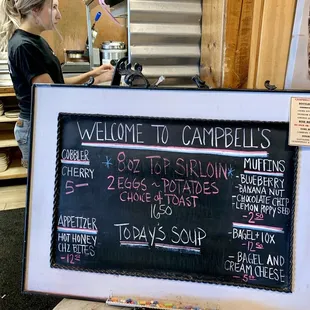 WELCOME TO CAMPBELL'S
COBBLER
CHERRY
5
APPETIZER
HOT HONEY
CHZ BITES
12
8oz TOP SIRLOIN
2 EGGS ~ POTATOES
CHOICE OF TOAST
1650
TODAY'S SOUP
MUFFINS
- BLUEBERRY
- BANANA NUT
- CHOCOLATE CHIP
LEMON POPPY SEED
- 2.50
- BAGEL + LOX
- 12.50
- BAGEL AND
CREAM CHEESE